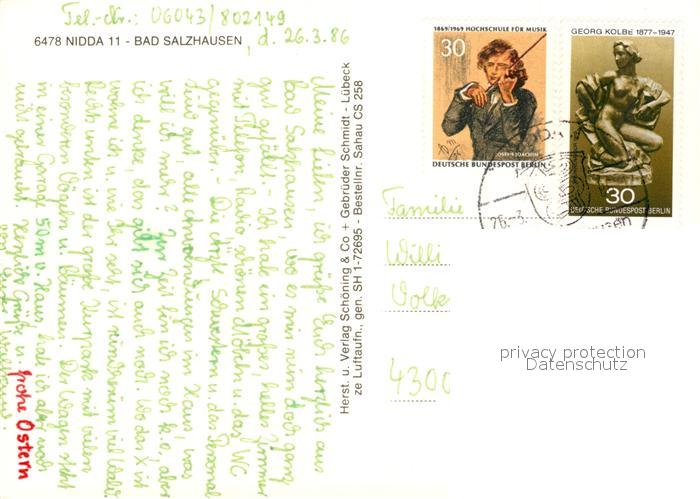 Tel.-Nr.: 06043/802149
6478 NIDDA 11 - BAD SALZHAUSEN, d. 26.3.86
Meine Lieben, ich grüße Euch herzlich aus
Bad Salzhausen, wo es mir nun doch ganz
gut gefällt. Hab ein großes, helles Zimmer
mit Liege, schönen Möbeln u. das WC
gegenüber. Die Schwestern u. das Personal
sind auf alle im Haus, was
will ich mehr? Zur Zeit bin ich noch k.o., aber
ich denke, das gibt sich auch noch. Wo das X ist
wohne ich, wie Ihr seht, ist rundherum viel Wald
Kurpark mit vielen
Vögeln u. Blumen. Der Wagen steht
in einer Garage 50m v. Haus, hab ich aber noch
nicht gebraucht. Herzliche Grüße u. frohe Ostern
von
Herst. u. Verlag Schöning & Co + Gebrüder Schmidt - Lübeck
ze Luftaufn., gen. SH 1-72695 - Bestellnr. Sahau CS 258
1869/1969 HOCHSCHULE FÜR MUSIK
30
JOSEPH JOACHIM
DEUTSCHE BUNDESPOST BERLIN
GEORG KOLBE 1877-1947
30
DEUTSCHE BUNDESPOST BERLIN
26.-3.
Familie
Willi
Volk
4300
privacy protection
Datenschutz